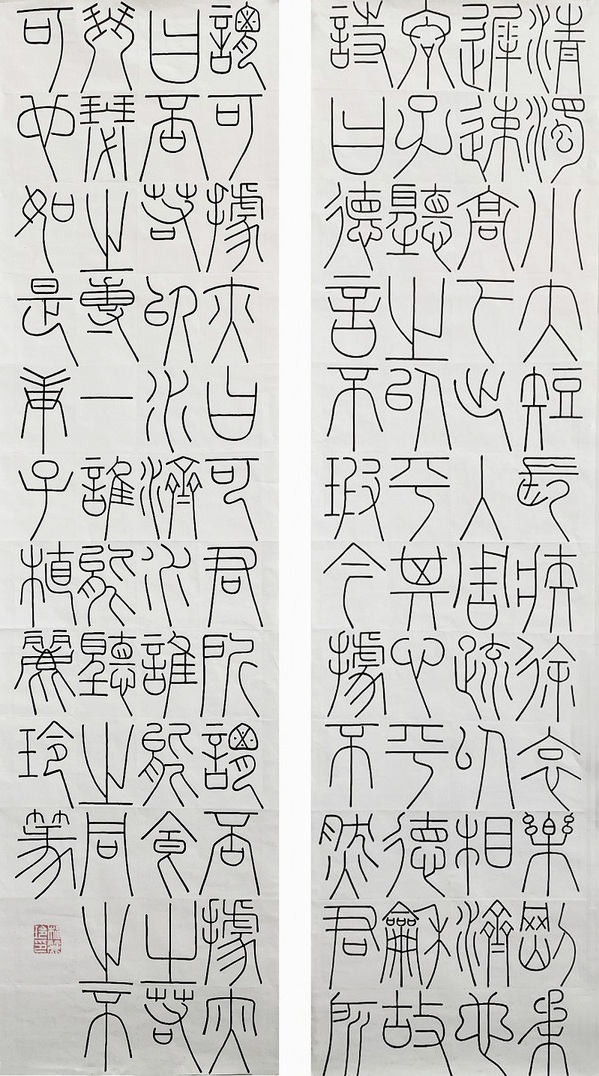 清濁小大短長疾徐哀樂剛柔
遲速高下出入周疏以相濟也
君子聽之以平其心平德龢故
詩曰德音不瑕今據不然君所
謂可據亦曰可君所謂否據亦
曰否若以水濟水誰能食之若
琴瑟之專一誰能聽之同之不
可也如是庚子植麗玲篆